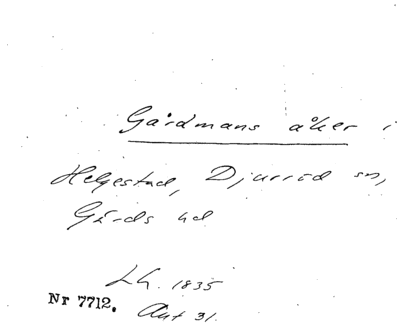 Gårdmans åker i
Helgestad, Djurröd sn,
Gärds hd
Lh. 1835
Nr 7712. Akt 31.